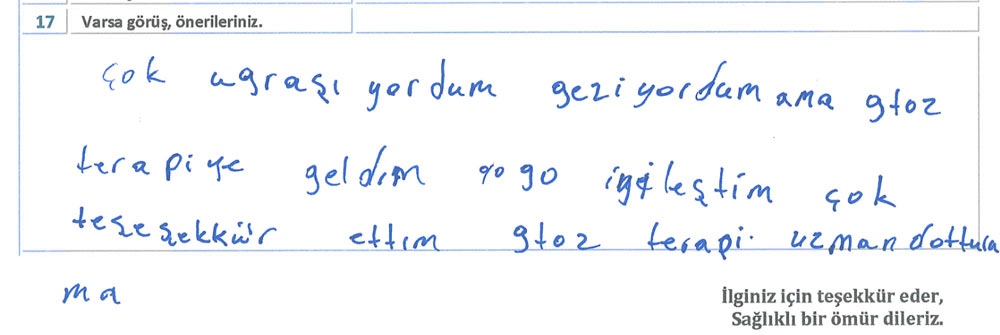 17 Varsa görüş, önerileriniz.
çok ugraşıyordum geziyordum ama gtoz
terapiye geldım %90 iyileştim çok
teşeşekkür ettım gtoz terapi uzman dottura
ma
İlginiz için teşekkür eder,
Sağlıklı bir ömür dileriz.